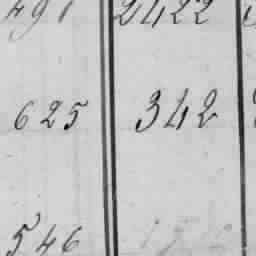 491 2422
625 342
546